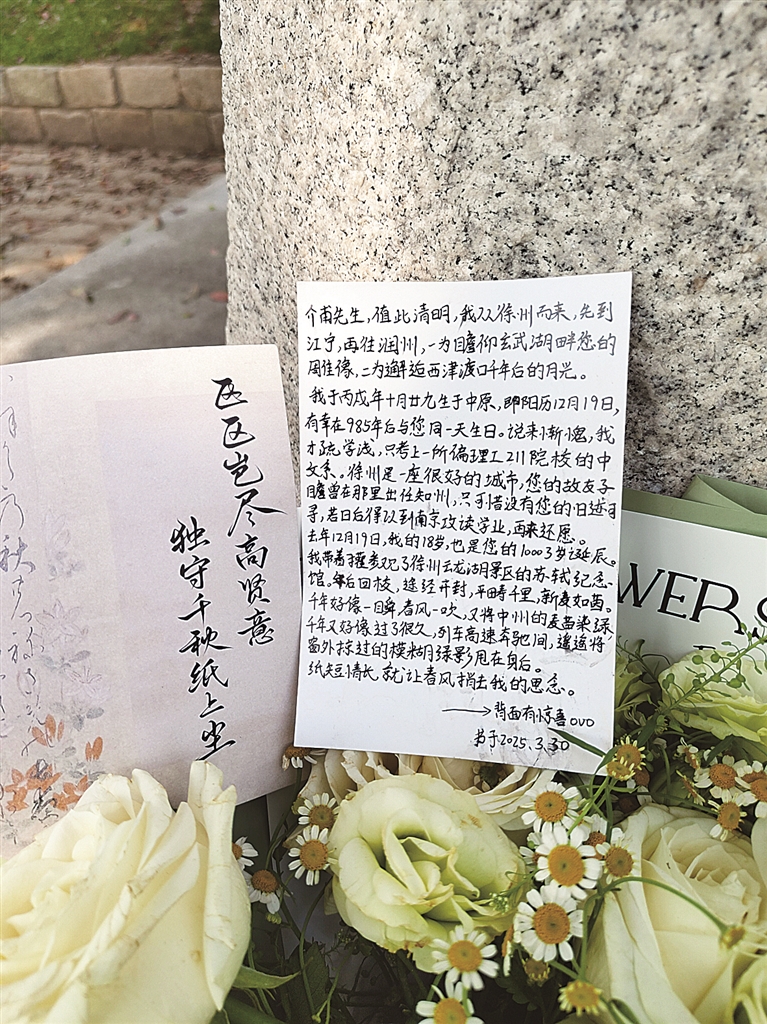 区区岂尽高贤意
独守千秋纸上尘
介甫先生,值此清明,我从徐州而来,先到
江宁,再往润州,一为瞻仰玄武湖畔您的
雕像,二为邂逅西津渡口千年后的月光。
我于丙戌年十月廿九生于中原,即阳历12月19日,
有幸在985年后与您同一天生日。说来惭愧,我
才疏学浅,只考上一所偏理工211院校的中
文系。徐州是一座很好的城市,您的故友子
瞻曾在那里出任知州,只可惜没有您的旧迹可
寻,若日后得以到南京攻读学业,再来还愿。
去年12月19日,我的18岁,也是您的1003岁诞辰。
我带着獾参观了徐州云龙湖景区的苏轼纪念
馆。年后回校,途经开封,平畴千里,新麦如茵。
千年好像一瞬,春风一吹,又将中州的麦苗染绿
千年又好像过了很久,列车高速奔驰间,遥遥将
窗外掠过的模糊绿影甩在身后。
纸短情长,就让春风捎去我的思念。
→背面有惊喜OVO
书于2025.3.30
WERS